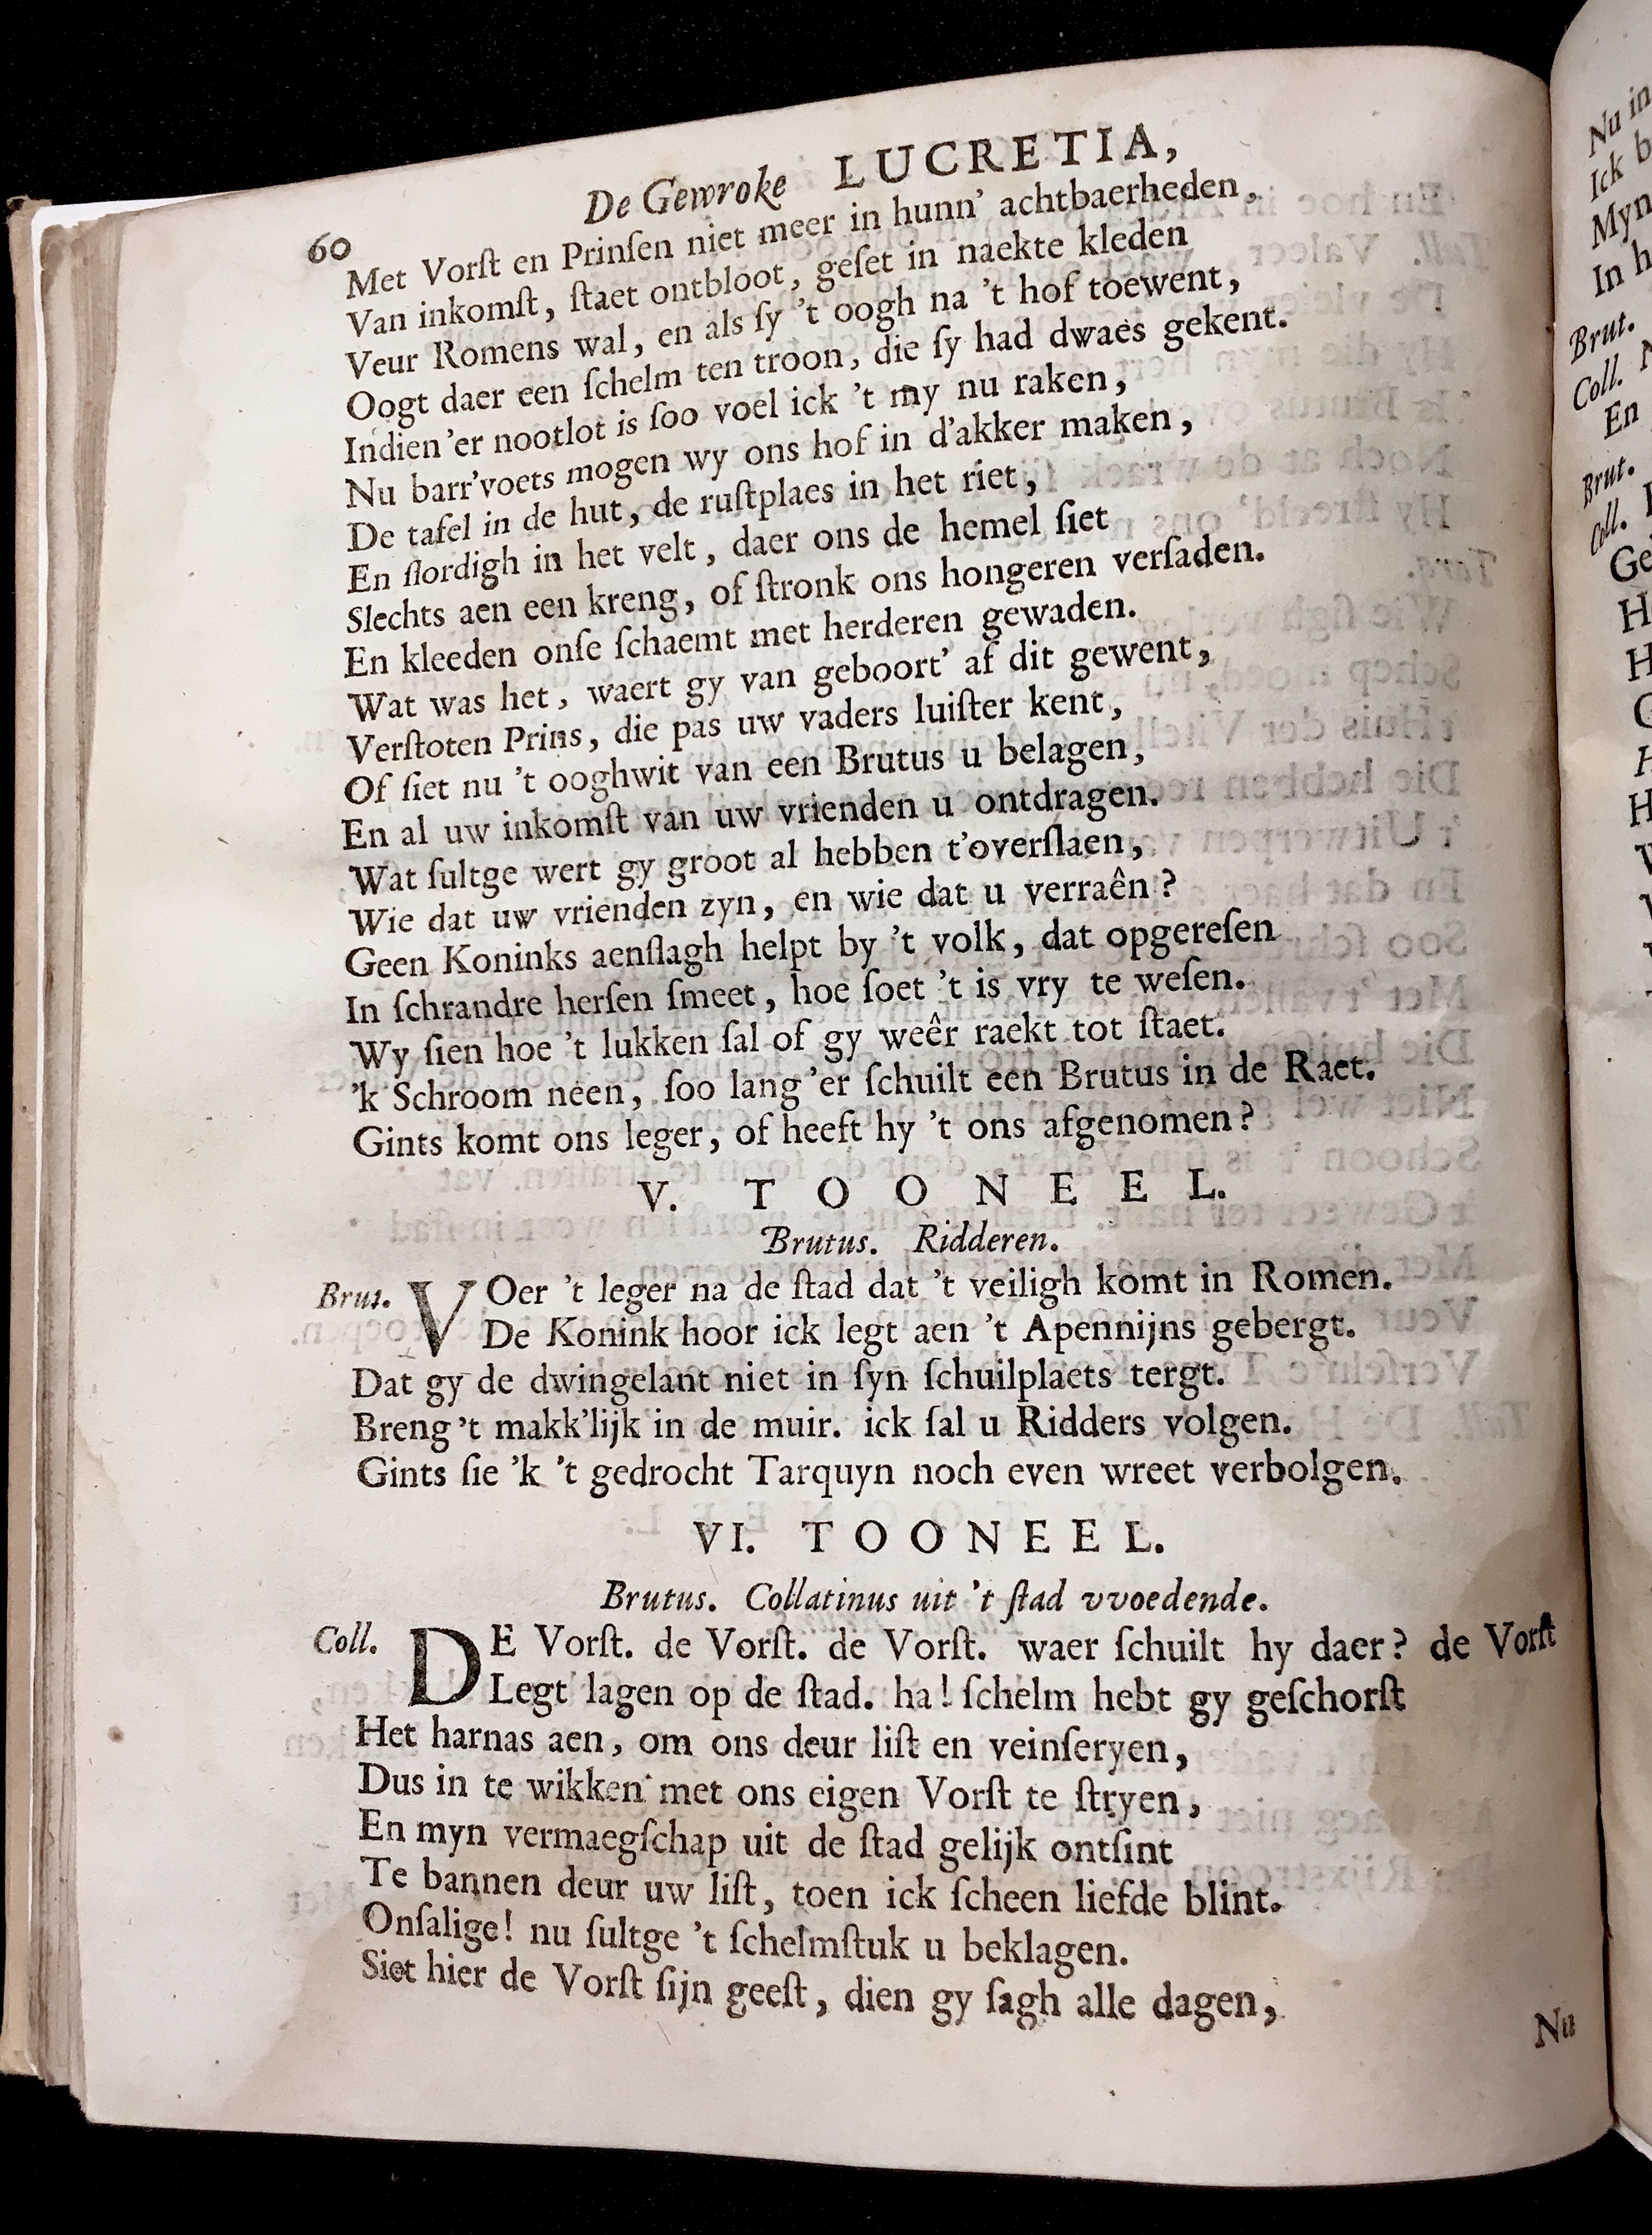 60 De Gewroke LUCRETIA,
Met Vorſt en Prinſen niet meer in hunn' achtbaerheden,
Van inkomſt, ſtaet ontbloot, geſet in naekte kleden
Veur Romens wal, en als ſy 't oogh na 't hof toewent,
Oogt daer een ſchelm ten troon, die ſy had dwaes gekent.
Indien 'er nootlot is ſoo voel ick 't my nu raken,
Nu barr'voets mogen wy ons hof in d'akker maken,
De tafel in de hut, de ruſtplaes in het riet,
En ſlordigh in het velt, daer ons de hemel ſiet
Slechts aen een kreng, of ſtronk ons hongeren verſaden.
En kleeden onſe ſchaemt met herderen gewaden.
Wat was het, waert gy van geboort' af dit gewent,
Verſtoten Prins, die pas uw vaders luiſter kent,
Of ſiet nu 't ooghwit van een Brutus u belagen,
En al uw inkomſt van uw vrienden u ontdragen.
Wat ſultge wert gy groot al hebben t'overſlaen,
Wie dat uw vrienden zyn, en wie dat u verraên?
Geen Koninks aenſlagh helpt by 't volk, dat opgereſen
In ſchrandre herſen ſmeet, hoe ſoet 't is vry te weſen.
Wy ſien hoe 't lukken ſal of gy weêr raekt tot ſtaet.
'k Schroom neen, ſoo lang 'er ſchuilt een Brutus in de Raet.
Gints komt ons leger, of heeft hy 't ons afgenomen?
V. TOONEEL.
Brutus. Ridderen.
Brut. VOer 't leger na de ſtad dat 't veiligh komt in Romen.
De Konink hoor ick legt aen 't Apennijns gebergt.
Dat gy de dwingelant niet in ſyn ſchuilplaets tergt.
Breng 't makk'lijk in de muir. ick ſal u Ridders volgen.
Gints ſie 'k 't gedrocht Tarquyn noch even wreet verbolgen.
VI. TOONEEL.
Brutus. Collatinus uit 't ſtad vvoedende.
Coll. DE Vorſt. de Vorſt. de Vorſt. waer ſchuilt hy daer? de Vorſt
Legt lagen op de ſtad. ha! ſchelm hebt gy geſchorſt
Het harnas aen, om ons deur liſt en veinſeryen,
Dus in te wikken met ons eigen Vorſt te ſtryen,
En myn vermaegſchap uit de ſtad gelijk ontſint
Te bannen deur uw liſt, toen ick ſcheen liefde blint.
Onſalige! nu ſultge 't ſchelmſtuk u beklagen.
Siet hier de Vorſt ſijn geeſt, dien gy ſagh alle dagen,
Nu
Nu in
Ick
Myn
In
Brut.
Coll.
En
Brut.
Coll.